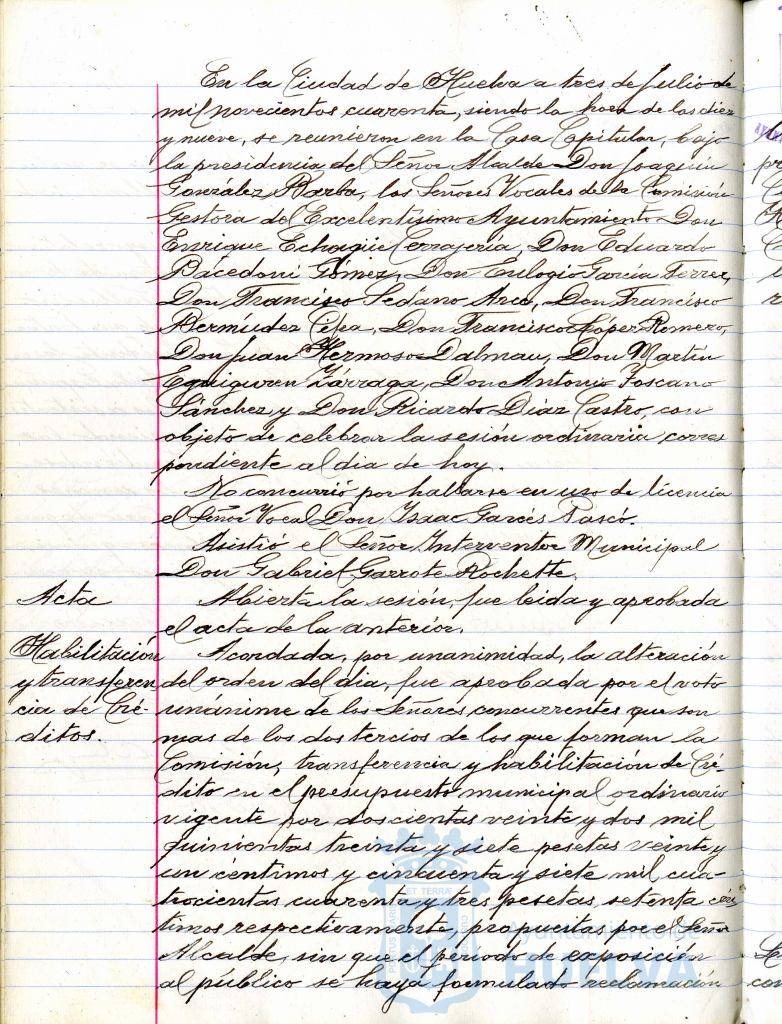 En la Ciudad de Huelva a tres de Julio de
mil novecientos cuarenta, siendo la hora de las diez
y nueve, se reunieron en la Casa Capitular, bajo
la presidencia del Señor Alcalde Don Joaquín
González Barba, los Señores Vocales de la Comisión
Gestora del Excelentísimo Ayuntamiento Don
Enrique Echagüe Cerrajería, Don Eduardo
Bácedoni Gómez, Don Eulogio García Ferrer,
Don Francisco Sedano Arce, Don Francisco
Bermúdez Don Francisco López Romero,
Don Juan Hermoso Dalmau, Don Martín
Eguiguren Zárraga, Don Antonio Toscano
Sánchez y Don Ricardo Díaz Castro, con
objeto de celebrar la sesión ordinaria corres
pondiente al dia de hoy.
No concurrió por hallarse en uso de licencia
el Señor Vocal Don Isaac Garcés
Asistió el Señor Interventor Municipal
Don Gabriel Garrote Rochette.
Acta
Abierta la sesión, fue leida y aprobada
el acta de la anterior.
Habilitación
y transferen
cia de Cré-
ditos.
Acordada, por unanimidad, la alteración
del orden del dia, fue aprobada por el voto
unánime de los Señores concurrentes que son
mas de los dos tercios de los que forman la
Comisión, transferencia y habilitación de Cré-
dito en el presupuesto municipal ordinario
vigente por doscientas veinte y dos mil
quinientas treinta y siete pesetas veinte y
un céntimos y cincuenta y siete mil cua-
trocientas cuarenta y tres pesetas, setenta cén
timos respectivamente, propuestas por el Señor
Alcalde, sin que el período de exposición
al público se haya formulado reclamación
Ayuntamiento de
HUELVA